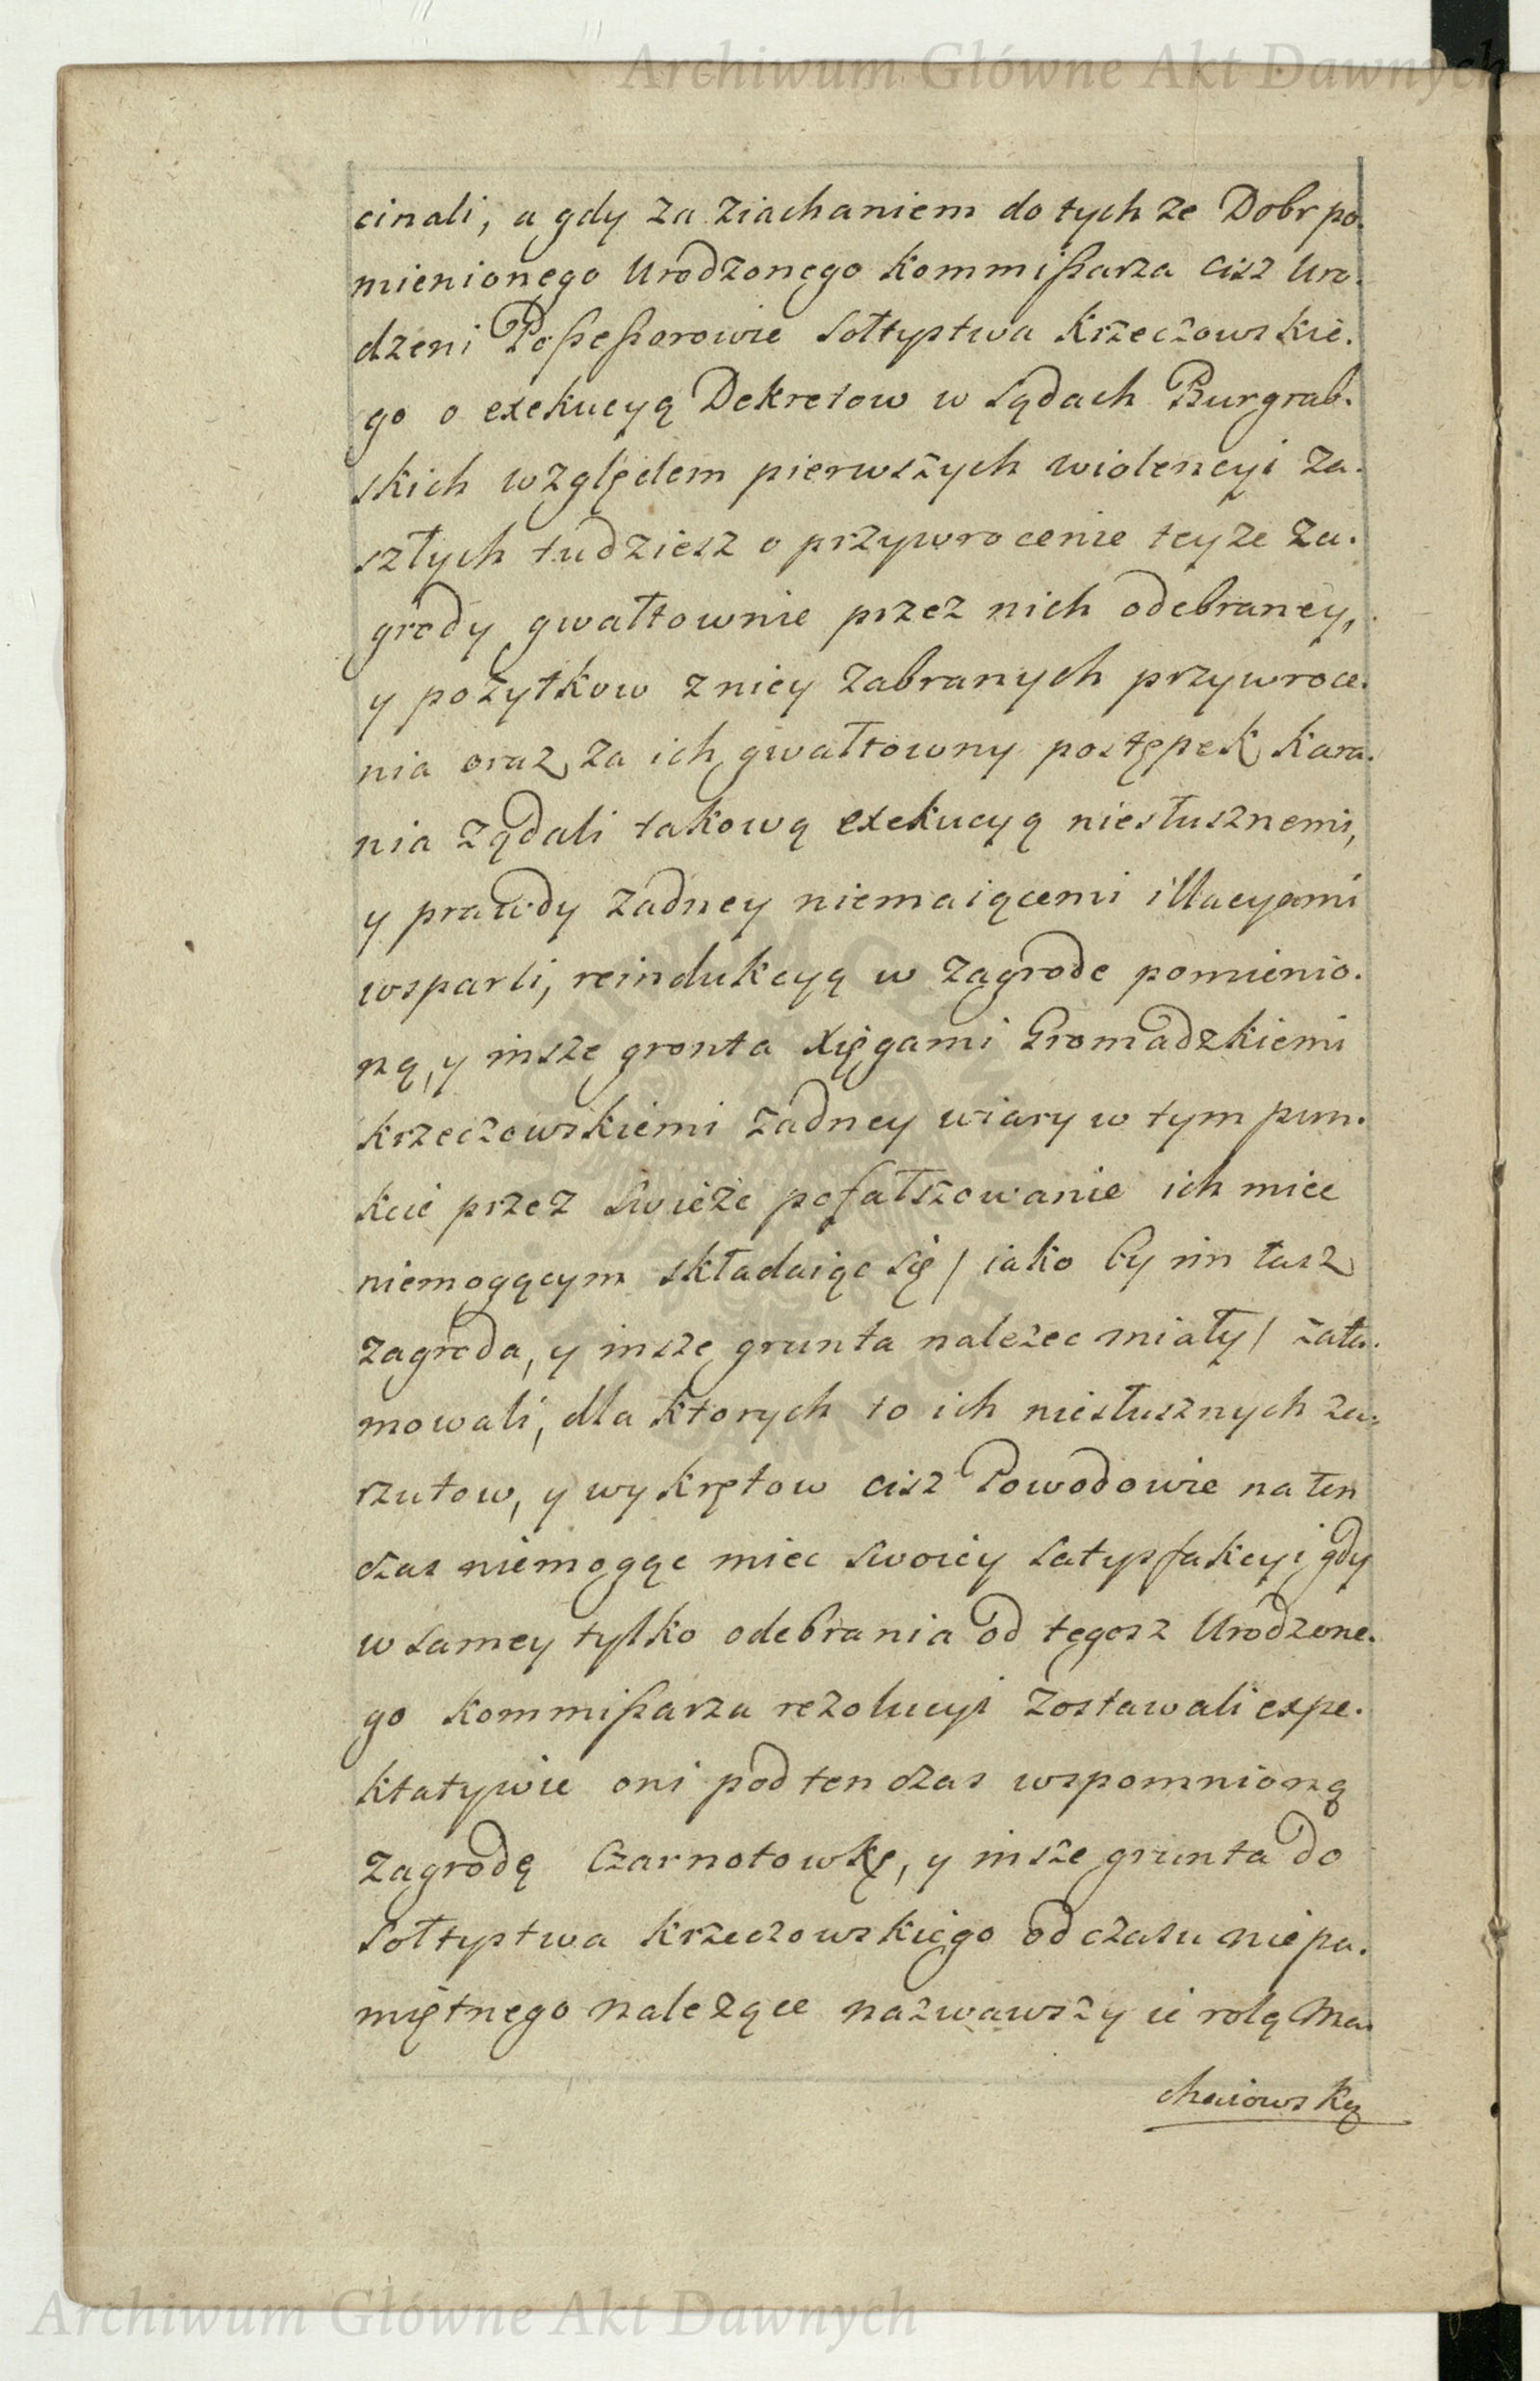 Archiwum Główne Akt Dawnych
cinali, a gdy za ziachaniem do tych ze Dobr po.
mienionego Urodzonego Kommißarza cisz Uro.
dzeni Poßeßorowie Sołtystwa Krzeczowskie.
go o exekucyą Dekretow w Sądach Burgrab.
skich względem pierwszych wiolencyi za.
szłych tudziesz o przywrocenie teyze za.
grody gwałtownie przez nich odebraney,
y pożytkow z niey zabranych przywroce.
nia oraz za ich gwałtowny postępek kara.
nia ządali takową exekucyą niesłusznemi,
y prawdy zadney niemaiącemi illacyami
wsparli, reindukcyą w zagrode pomienio.
ną, y insze gronta Xięgami Gromadzkiemi
krzeczowskiemi żadney wiary w tym pun.
kcie przez swieże pofałszowanie ich miec
niemogącym składaiąc się / iako by im tasz
zagroda, y insze grunta nalezec miały / zata.
mowali, dla ktorych to ich niesłusznych za.
rzutow, y wykrętow cisz Powodowie na ten
czas niemogąc miec swoiey satysfakcyi gdy
w samey tylko odebrania od tegosz Urodzone.
go Kommißarza rezolucyi zostawali expe.
ktatywie oni pod ten czas wspomnioną
Zagrodę Czarnotowkę, y insze grunta do
Sołtystwa Krzeczowskiego od czasu niepa.
miętnego nalezące nazwawszy ie rolą Ma.
chaiowską
Archiwum Główne Akt Dawnych